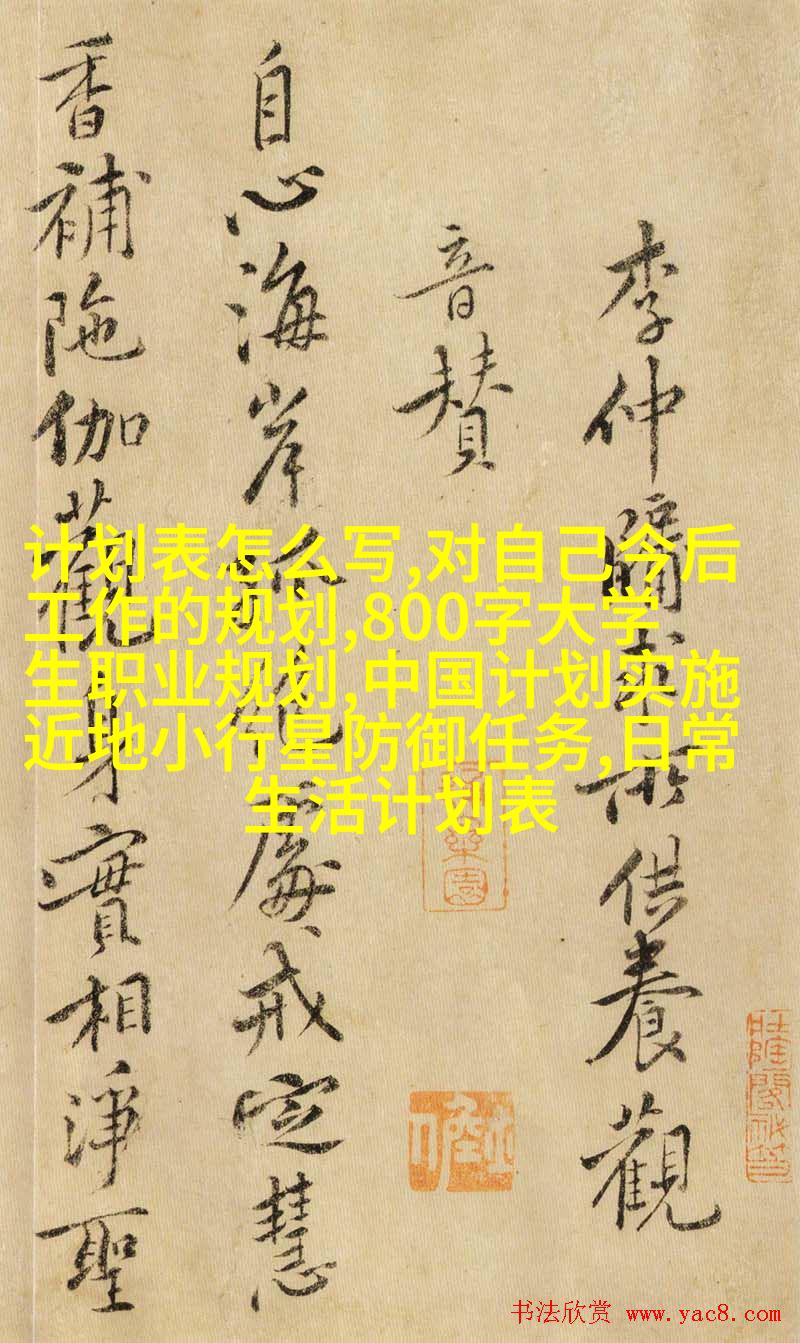 李仲牖奉所供養觀
音赞
自心海岸孤絶處戒定慧
香補陁伽觀身實相淨聖
计划表怎么写,对自己今后
工作的规划,800字大学
生职业规划,中国计划实施
近地小行星防御任务,日常
生活计划表
书法欣赏 www.yac8.com